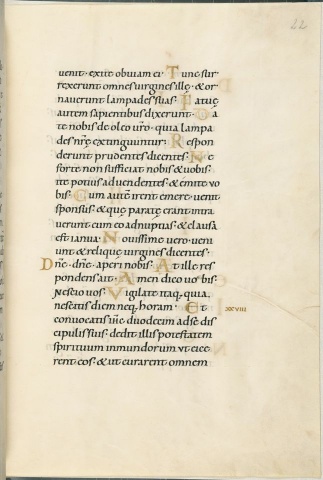 22
uenit · exite obuiam ei · Tunc sur
rexerunt omnes uirgines illę · & or
nauerunt lampades suas · Fatuę
autem sapientibus dixerunt · Da
te nobis de oleo uřo · quia lampa
des nřę extinguuntur : Respon
derunt prudentes dicentes · Ne
forte non sufficiat nobis & uobis ·
ite potius ad uendentes · & emite uo
bis · Cum autē irent emere · uenit
sponsus · & quę paratę erant intra
uerunt cum eo ad nuptias · & clausa
est ianua · Nouissime uero ueni
unt & reliquę uirgines dicentes ·
Dñe · dñe · aperi nobis · At ille res
pondens ait · Amen dico uobis ·
nescio uos · Vigilate itaq; quia
nescitis diem neq; horam · Et
XXVIII
conuocatis iħc duodecim ad se dis
cipulis suis · dedit illis potestatem
spirituum inmundorum ut eice
rent eos · & ut curarent omnem